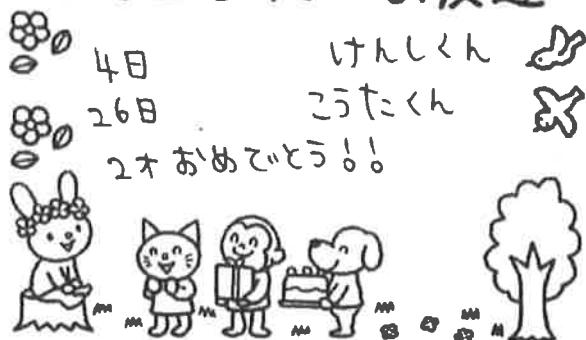 4日 けんしくん
26日 こうたくん
2才 おめでとう!!